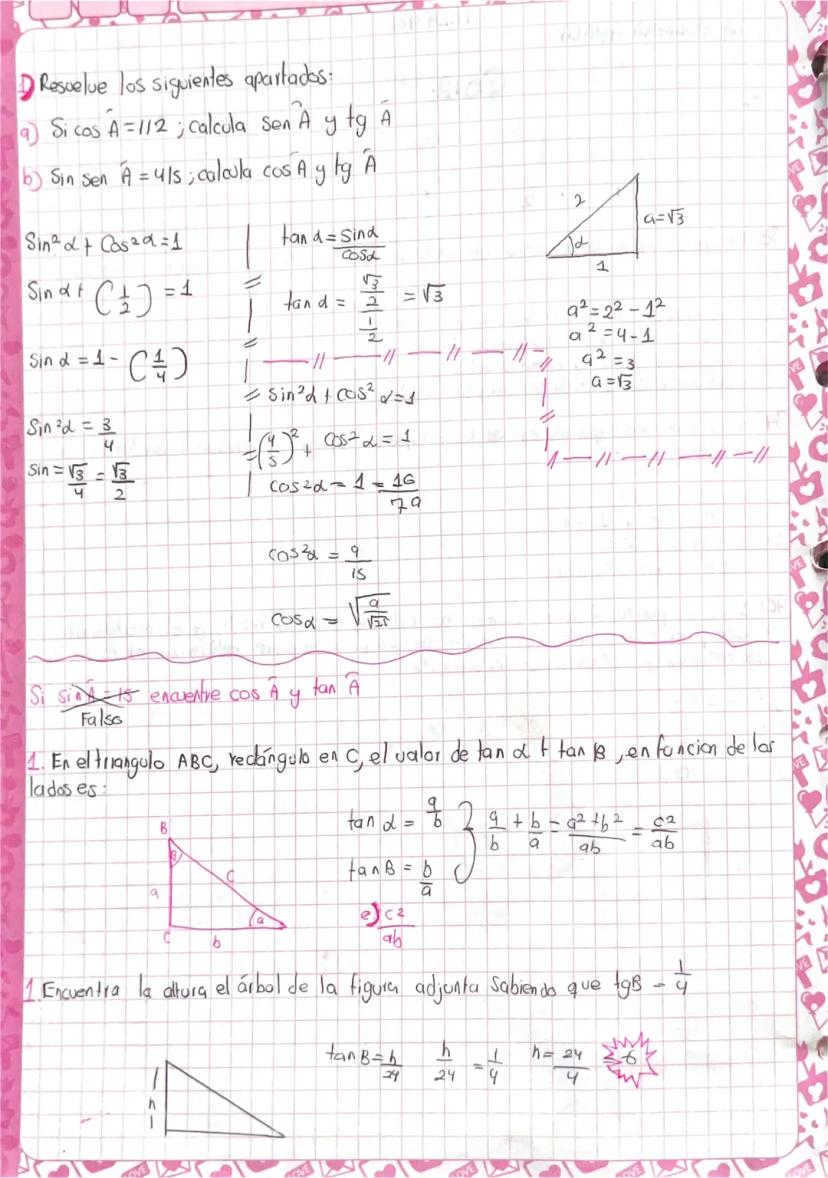 1) Resuelve los siguientes apartados:
a) Si cos Â=1/2 ; calcula sen Â y tg Â
b) Sin sen Â = 4/5 ; calcula cos Â y tg Â
Sin²α + Cos²α = 1
Sin α + (1/2) = 1
Sin α = 1 - (1/4)
Sin²α = 3/4
sin = √3/4 = √3/2
tan α = Sinα/cosα
tan α = (√3/2)/(1/2) = √3
2
a=√3
α
1
a² = 2² - 1²
a² = 4 - 1
a² = 3
a = √3
sin²α + cos²α = 1
= (4/5)² + cos²α = 1
cos2α = 1 = 16/79
cos²α = 9/15
cosα = √(9/√25)
Si sin Â = 15 encuentre cos Â y tan Â
Falso
1. En el triangulo ABC, rectángulo en C, el valor de tan α + tan B, en funcion de los
lados es:
B
B
a
c
C
b
a
tan α = a/b
tanB = b/a
a/b + b/a = a² + b²/ab = c2/ab
e) c2/ab
1. Encuentra la altura el árbol de la figura adjunta Sabiendo que tgB = 1/4
h
tanB = h/24
h/24 = 1/4
h = 24/4 = 6